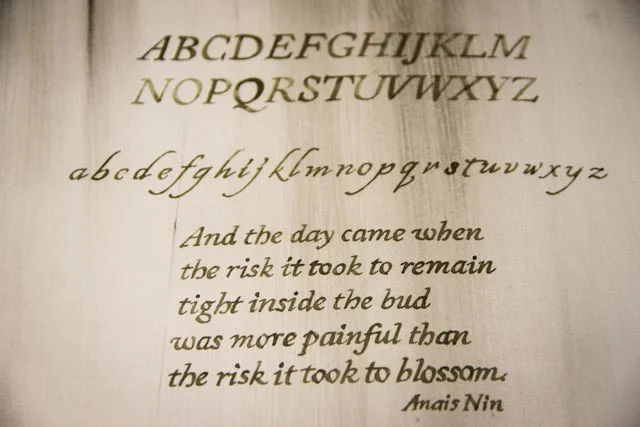 ABCDEFGHIJKLM
NOPQRSTUVWXYZ
abcdefghijklmnopqrstuvwxyz
And the day came when
the risk it took to remain
tight inside the bud
was more painful than
the risk it took to blossom.
Anais Nin